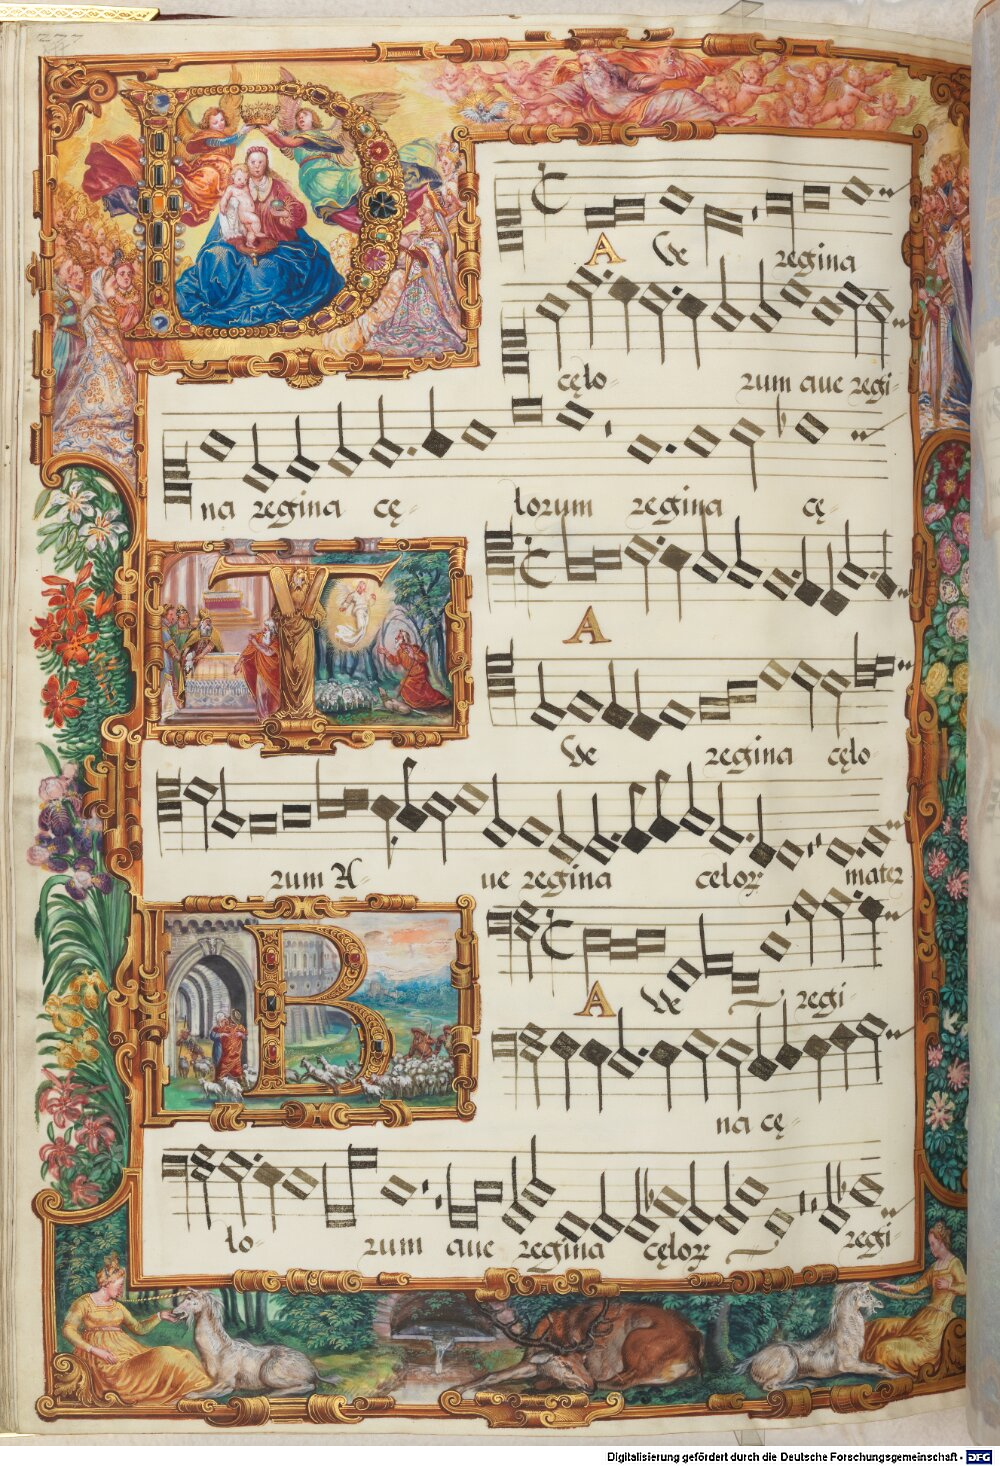 D
A ve regina
cęlo rum aue regi
na regina cę lorum regina cę
T
A
ve regina cęlo
rum A ue regina celoꝝ mater
B
A ve regi
na cę
lo rum aue regina cęloꝝ regi
Digitalisierung gefördert durch die Deutsche Forschungsgemeinschaft - DFG